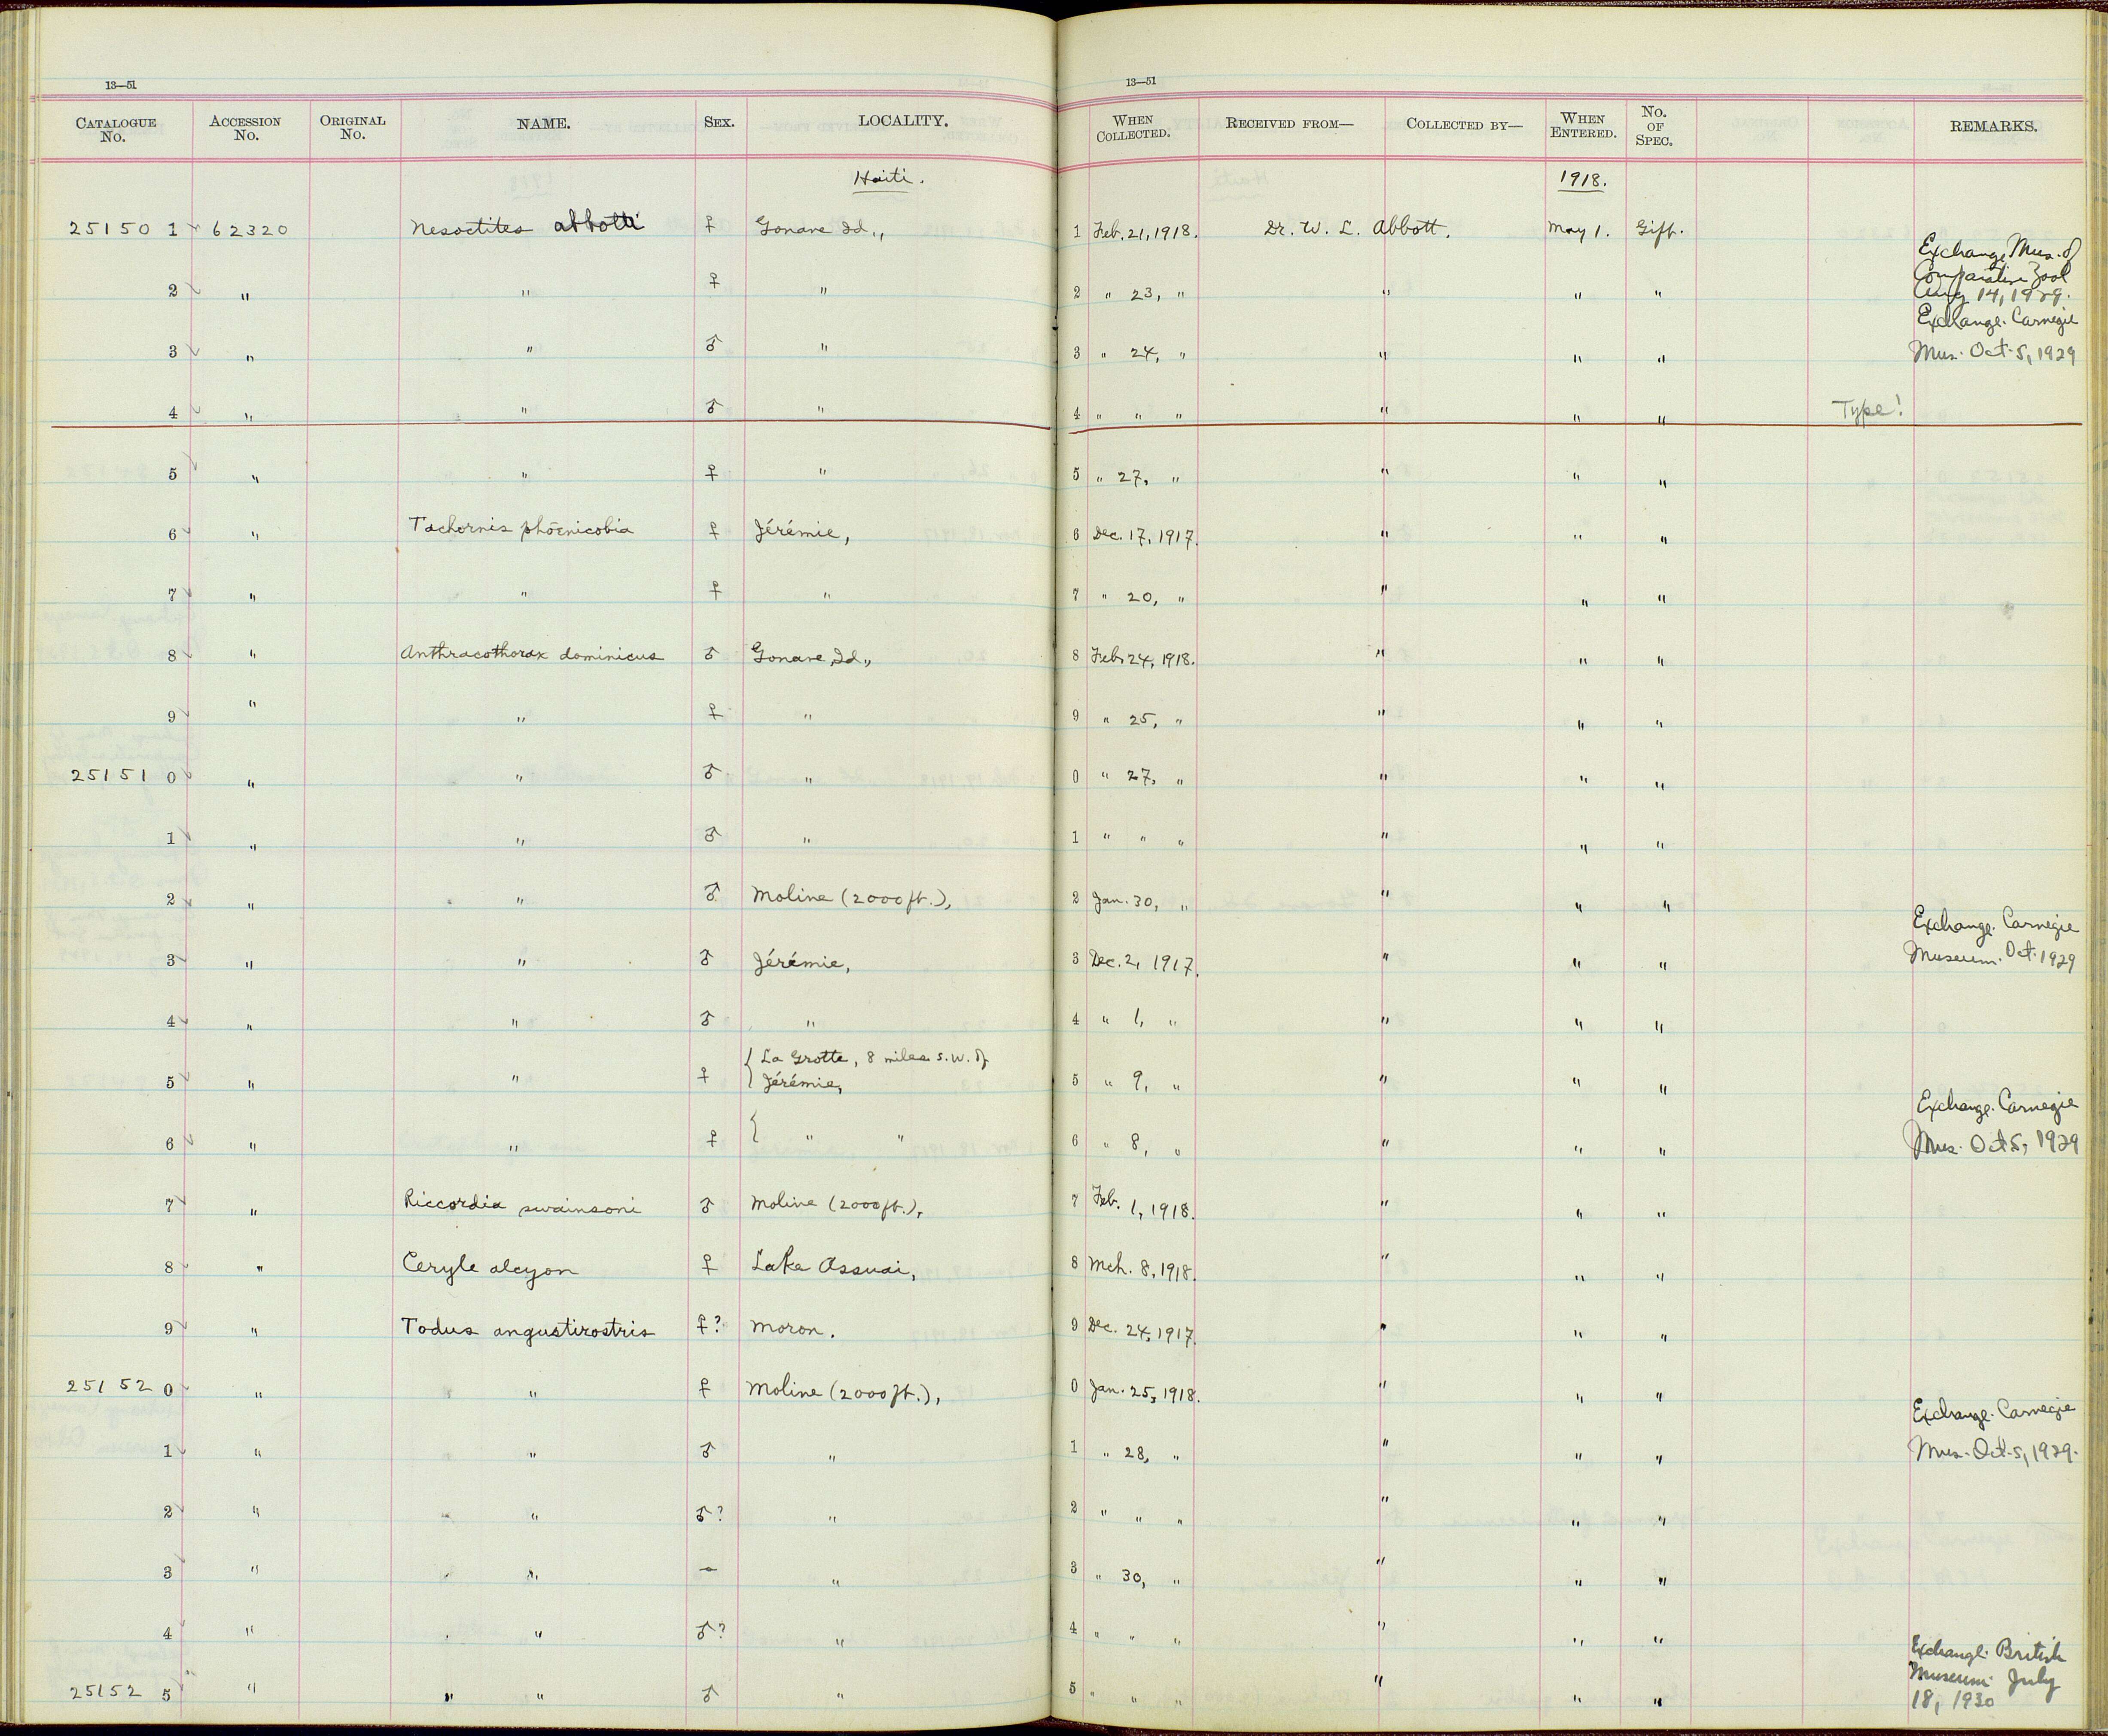 13—51
13—51
CATALOGUE No. ACCESSION No. ORIGINAL No. NAME. SEX. LOCALITY. WHEN COLLECTED. RECEIVED FROM— COLLECTED BY— WHEN ENTERED. No. OF SPEC. REMARKS.
Haiti. 1918.
25150 1 62320 Nesoctites abbotti ♀ Gonave Id., 1 Feb. 21, 1918. Dr. W. L. Abbott. May 1. Gift.
2 " " ♀ " 2 " 23, " " " " Exchange Mus. of Comparative Zool Aug 14, 1929.
3 " " ♂ " 3 " 24, " " " " Exchange. Carnegie Mus. Oct. 5, 1929
4 " " ♂ " 4 " " " " " " Type!
5 " " ♀ " 5 " 27, " " " "
6 " Tachornis phoenicobia ♀ Jérémie, 6 Dec. 17, 1917. " " "
7 " " ♀ " 7 " 20, " " " "
8 " Anthracothorax dominicus ♂ Gonave Id., 8 Feb. 24, 1918. " " "
9 " " ♀ " 9 " 25, " " " "
25151 0 " " ♂ " 0 " 27, " " " "
1 " " ♂ " 1 " " " " " "
2 " " ♂ Moline (2000 ft.), 2 Jan. 30, " " " "
3 " " ♂ Jérémie, 3 Dec. 2, 1917. " " " Exchange. Carnegie Museum. Oct. 1929
4 " " ♂ " 4 " 1, " " " "
5 " " ♀ { La Grotte, 8 miles S.W. of Jérémie, 5 " 9, " " " "
6 " " ♀ { " " 6 " 8, " " " " Exchange. Carnegie Mus. Oct 5, 1929
7 " Riccordia swainsoni ♂ Moline (2000 ft.), 7 Feb. 1, 1918. " " "
8 " Ceryle alcyon ♀ Lake Assuai, 8 Mch. 8, 1918. " " "
9 " Todus angustirostris ♀? Moron. 9 Dec. 24, 1917. " " "
25152 0 " " ♀ Moline (2000 ft.), 0 Jan. 25, 1918. " " "
1 " " ♂ " 1 " 28, " " " " Exchange. Carnegie Mus. Oct. 5, 1929.
2 " " ♂? " 2 " " " " " "
3 " " — " 3 " 30, " " " "
4 " " ♂? " 4 " " " " " "
25152 5 " " " ♂ " 5 " " " " " " Exchange. British Museum July 18, 1930